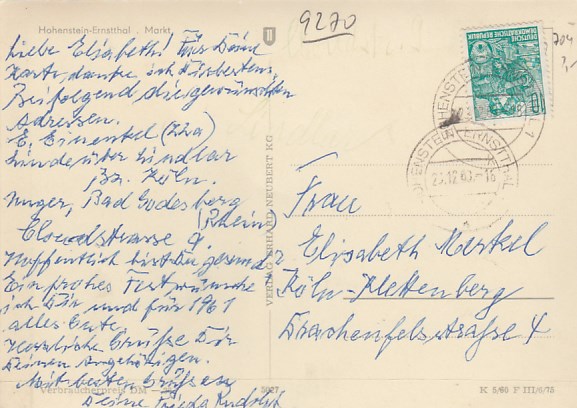 Hohenstein-Ernstthal . Markt
9270
704
Liebe Elisabeth! Für Deine
Karte, danke ich Dir bestens,
Beifolgend, die gewünschten
Adressen.
E. Einenkel (22a)
Linde über Lindlar
Bz. Köln.
Unger, Bad Godesberg
(Rhein
Hoffentlich bist Du gesund.
Ein frohes Fest wünsche
ich Dir und für 1961
alles Gute.
Herzliche Grüße Dir
Deinen Angehörigen.
Mit besten Grüßen
Deine Frieda Rudolph
VERLAG ERHARD NEUBERT KG
DEUTSCHE
DEMOKRATISCHE REPUBLIK
HOHENSTEIN-ERNSTTHAL 1
HOHENSTEIN-ERNSTTHAL
23.12.60.-16
Frau
Elisabeth Merkel
Köln-Klettenberg
Drachenfelsstraße 4
Verbraucherpreis DM
5627
K 5/60 F III/6/75